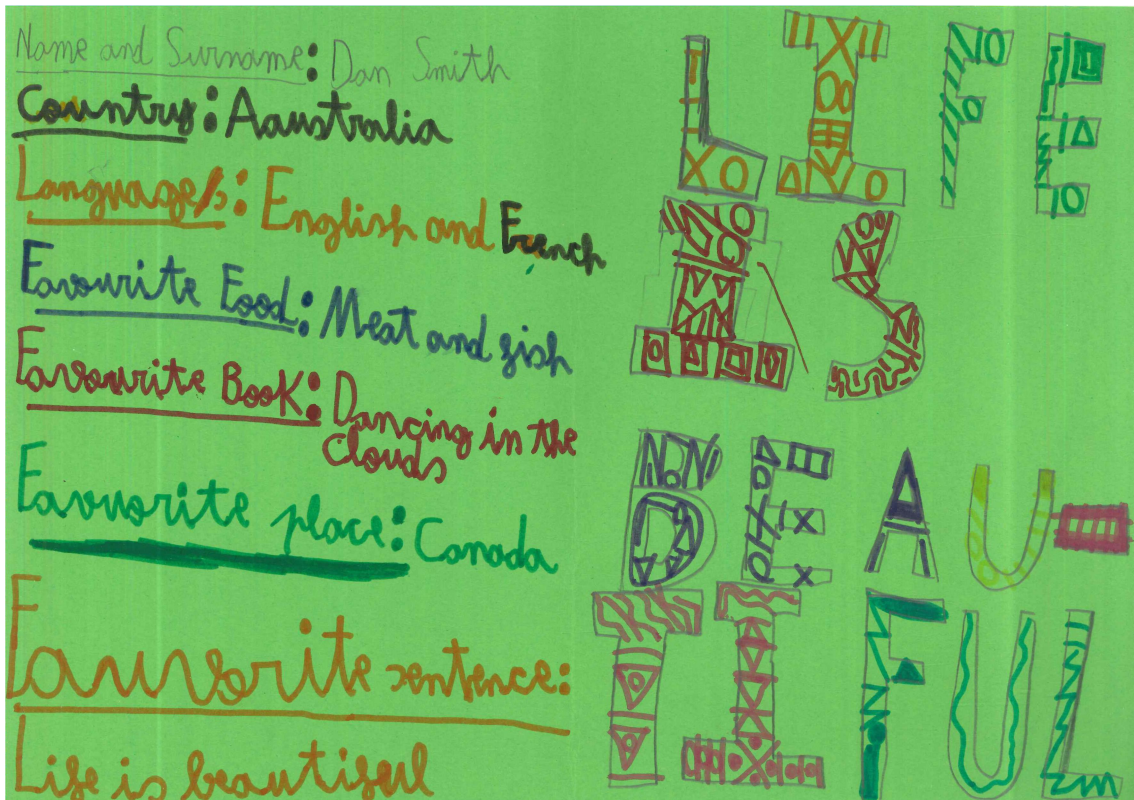 Name and Surname: Dan Smith
Country: Aaustralia
Language/s: English and French
Favourite Food: Meat and fish
Favourite Book: Dancing in the
Clouds
Favuorite place: Canada
Fauvorite sentence:
Life is beautiful
LIFE
IS
BEAU-
TIFUL